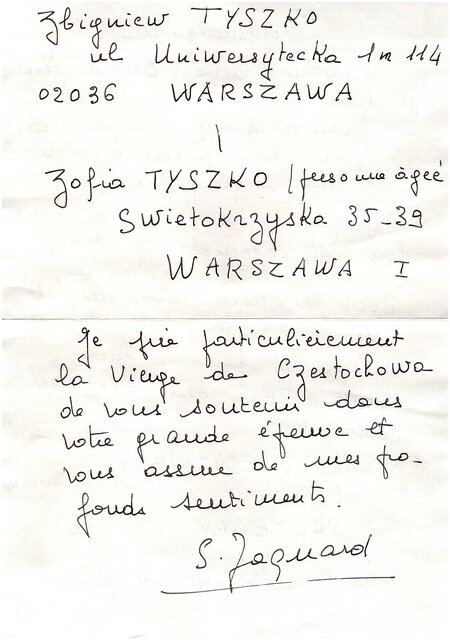 Zbigniew TYSZKO
ul Uniwersytecka 1 m 114
02036 WARSZAWA
Zofia TYSZKO / personne âgeé
Swietokrzyska 35-39
WARSZAWA I
Je prie particulièrement
la Vierge de Częstochowa
de vous soutenir dans
votre grande épreuve et
vous assure de mes pro-
fonds sentiments.
S. Jaguard